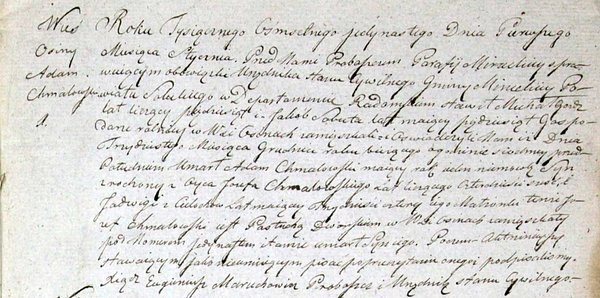 Wieś
Osiny
Adam
Chmalowski
1.
Roku Tysiącznego Osmsetnego jedynastego Dnia Pierwszego
Miesiąca Stycznia. Przed Nami Proboszczem Parafij Mirzeckiy spra
wuiącym obowiązki Urzędnika Stanu Cywilnego Gminy Mirzeckiey Po
wiatu Soleckiego w Departamencie Radomskim stawił Michał
lat liczący pędziesiąt i Jakob Sobuta lat maiący pędziesiąt Gospo
darze rolniczy w Wsi Osinach zamięszkali i Oswiadczyli Nam iż Dnia
Trzydziestego Miesiąca Grudnia roku bieżącego o godzinie siodmy przed
Południem Umarł Adam Chmalowski maiący rok ieden niemowlę Syn
zrodzony z Oyca Jozefa Chmalowskiego lat liczącego Czterdziesci sześć i
Jadwigi z lat maiący Trzydziesci cztery iego Małżonki tenże Jo
zef Chmalowski iest Pastuchą Dworskim w Wsi Osinach zamięszkały
pod Numerem jedynastym tamże umarł Syn iego. Poczem Akt ninieyszy
stawaiącym jako nieumieiącym pisać poprzeczytaniu onego podpisalismy.
Xiądz Eugeniusz Maruchowicz Proboszcz i Urzędnik Stanu Cywilnego.